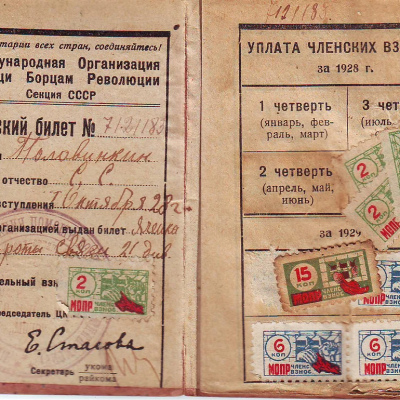 тарии всех стран, соединяйтесь!
ународная Организация
щи Борцам Революции
Секция СССР
ский билет № 7121183
Половинкин
отчество С. С.
вступления 7 Октября 28 г.
рганизацией выдан билет Ячейка
роты связи 21 див.
ельный взн
2
КОП
МОПР
ЧЛЕНСК
ВЗНОС
редседатель ЦК
Е. Стасова
Секретарь укома
райкома
712118
УПЛАТА ЧЛЕНСКИХ ВЗ
за 1928 г.
1 четверть
(январь, фев-
раль, март)
3 че
(июль,
2 четверть
(апрель, май,
июнь)
2
2
КОП
МОПР
за 192
15
КОП
МОПР
ЧЛЕНСК
ВЗНОС
6
КОП
МОПР
ЧЛЕНСК
ВЗНОС
6
КОП
МОПР
ЧЛЕНС
ВЗНОС